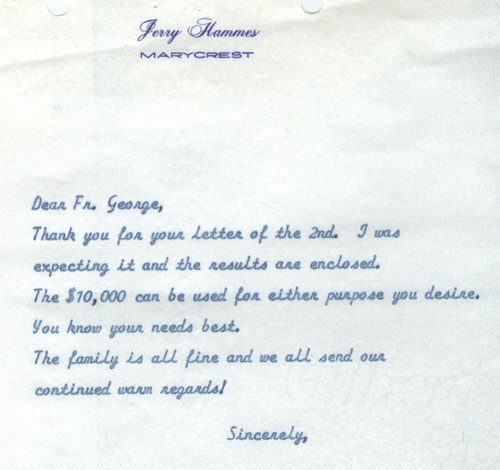 Jerry Hammes
MARYCREST
Dear Fr. George,
Thank you for your letter of the 2nd. I was
expecting it and the results are enclosed.
The $10,000 can be used for either purpose you desire.
You know your needs best.
The family is all fine and we all send our
continued warm regards!
Sincerely,